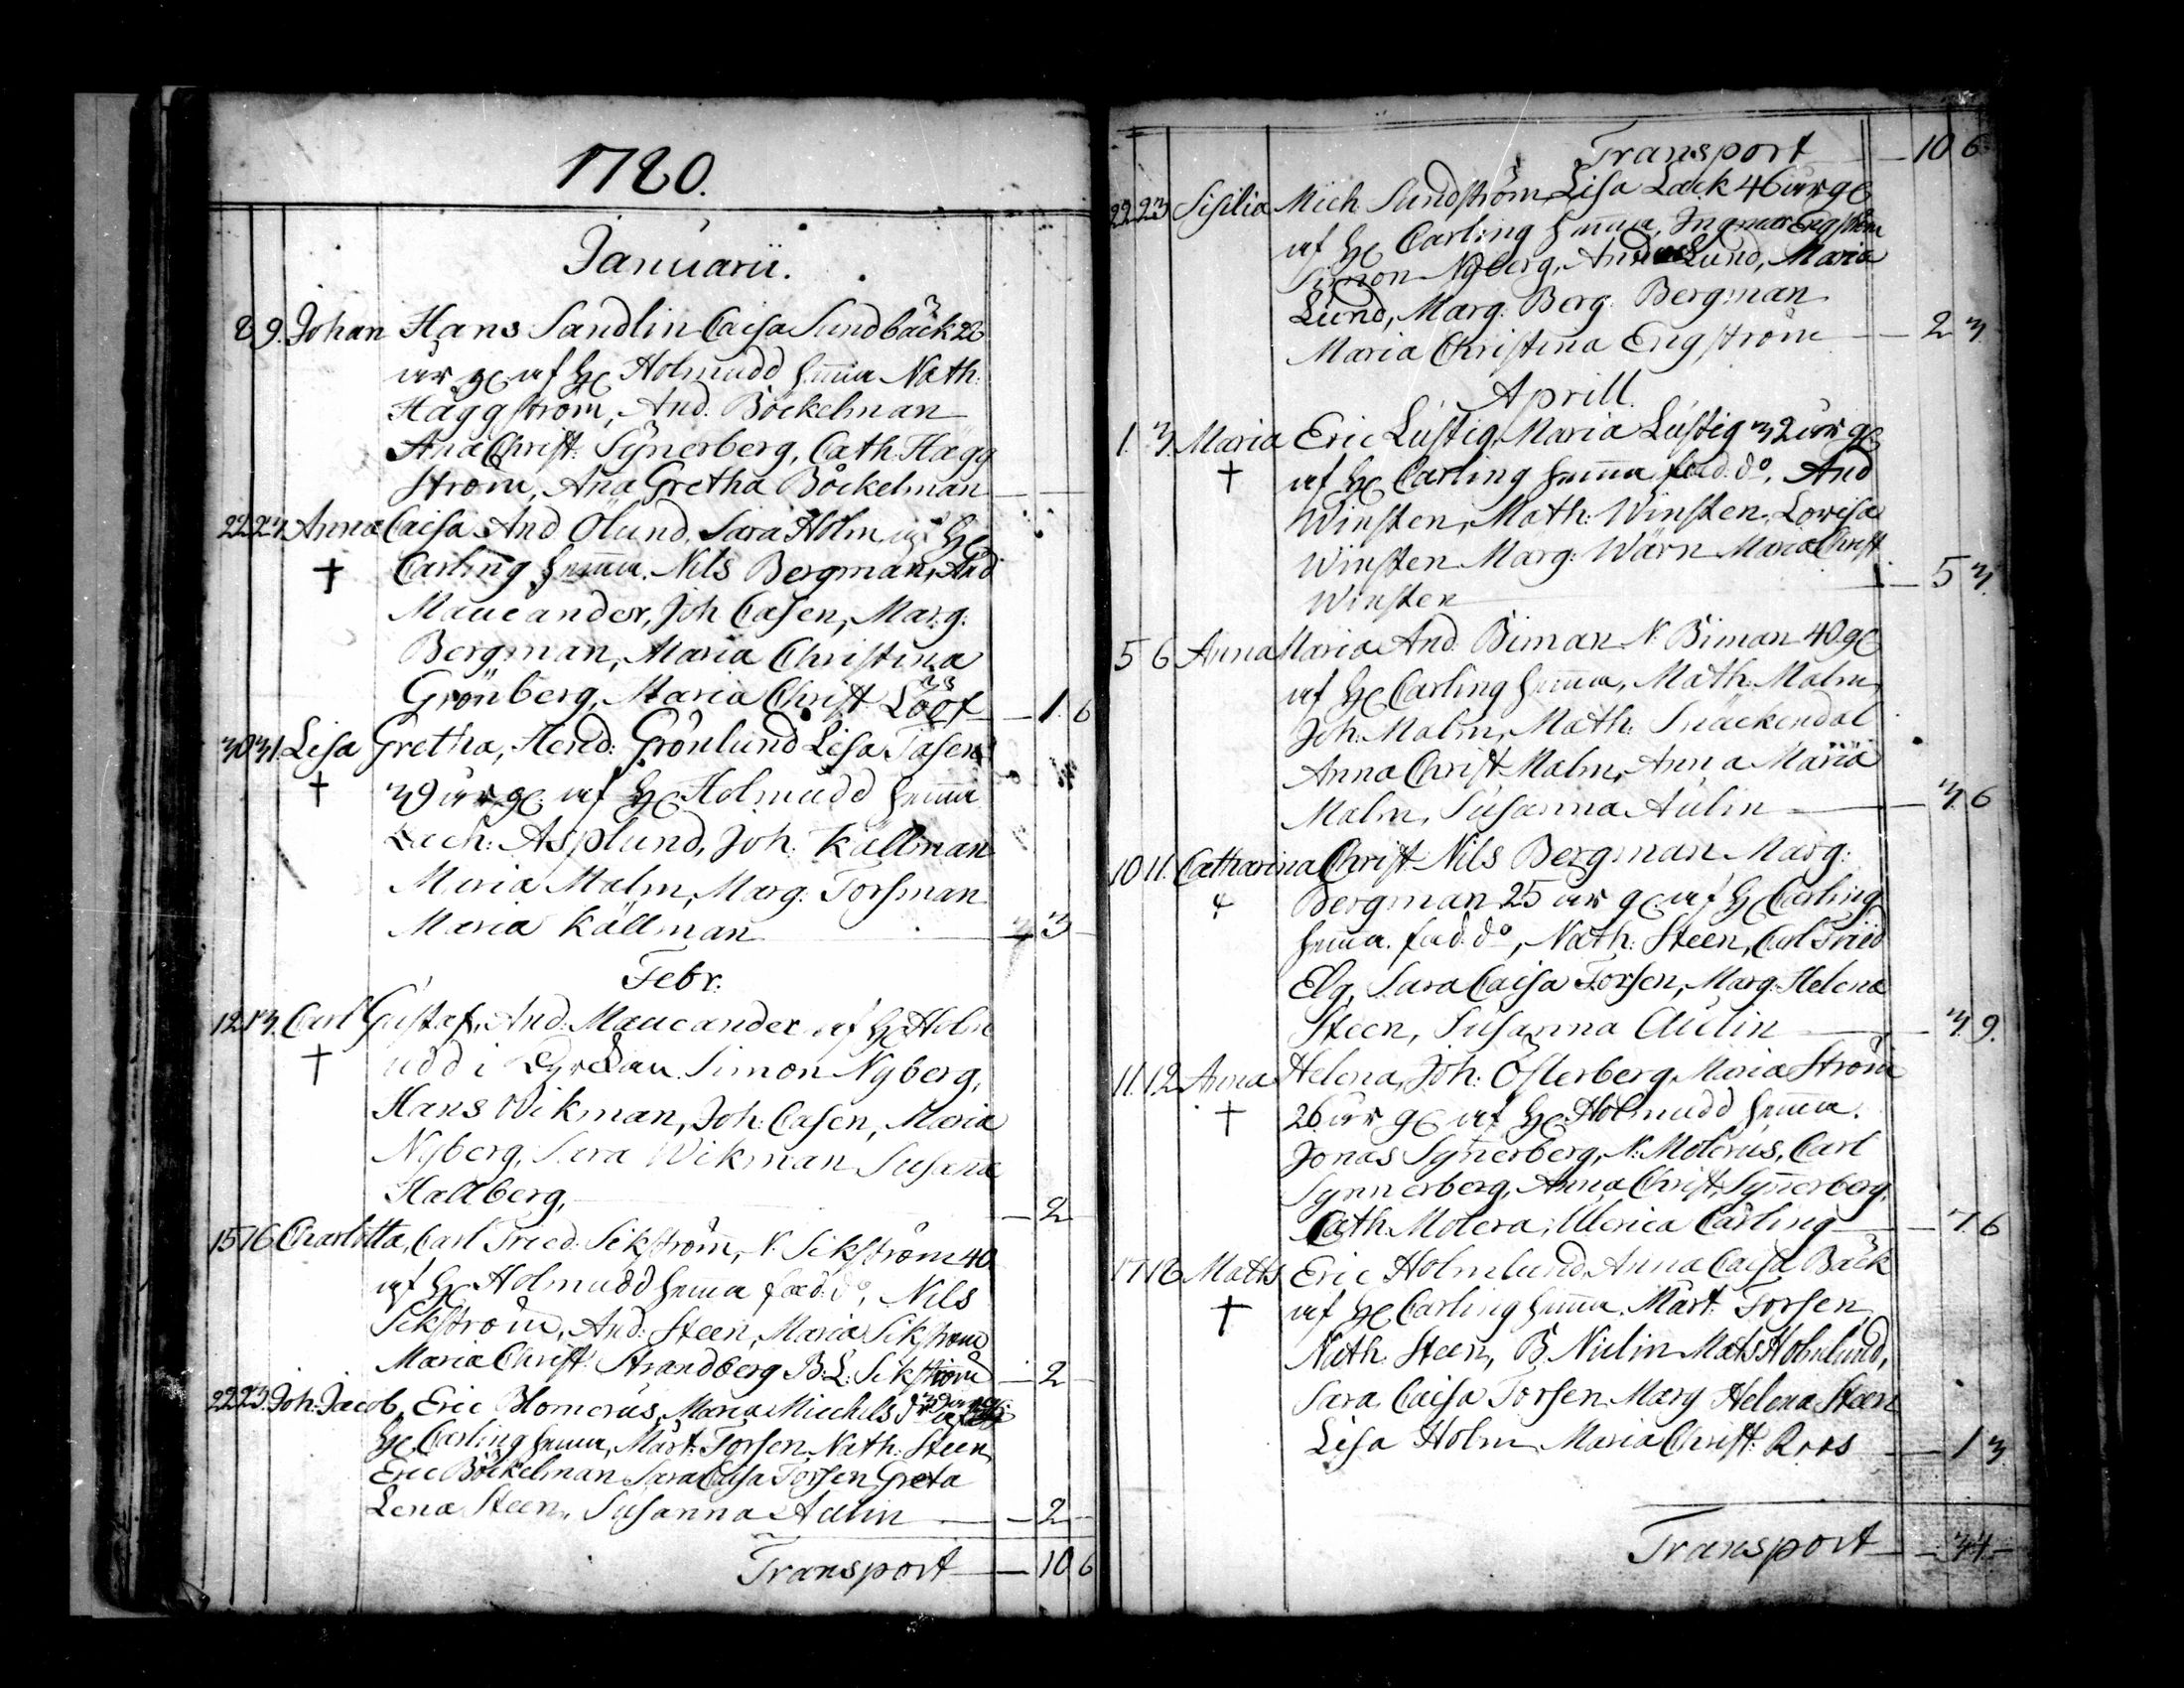 1780.
Januarii.
8 9. Johan Hans Sandlin Caisa Sundbäck 28
år gl af Hl Holmudd hemma Nath:
Häggström, And. Böckelman
Ana Christ: Synerberg, Cath. Hägg
ström, Ana Gretha Böckelman
22 23. Anna Caisa And Olund, Sara Holm af Hl
† Carling hemma. Nils Bergman, And
Maueander, Joh Casen, Marg:
Bergman, Maria Christina
Grönberg, Maria Christ Lööf — 1. 6
30 31. Lisa Gretha, Hend: Grönlund Lisa Tasen
† 39 år gl. af Hl Holmudd hemma
Zach: Asplund, Joh: Källman
Maria Malm, Marg: Torsman
Maria Källman — 3 —
Febr.
12 13. Carl Gustaf, And. Maueander af Hl Holm
† udd i Simon Nyberg,
Hans Wikman, Joh: Casen, Maria
Nyberg, Sara Wikman Susana
Hallberg, — 2 —
15 16 Charlotta, Carl Fried. Sikström, N. Sikström 40
af Hl Holmudd hemma fad: do, Nils
Sikström, And: Steen, Maria Sikström
Maria Christ: Strandberg B: L: Sikström — 2 —
22 23. Joh: Jacob, Eric Blomerus, Maria Michels dr
Hl Carling hemma, Mårt: Torsen, Nath: Steen
Eric Böckelman Sara Caisa Torsen Greta
Lena Steen, Susanna Aulin — 2 —
Transport — 10 6
Transport — 10 6.
22 23 Sisilia Mich. Sundström Lisa Lack 46 år gl
af Hl Carling hemma, Ingmar Engström
Simon Nyberg, Anna Lund, Maria
Lund, Marg. Berg. Bergman
Maria Christina Engström — 2 3
Aprill.
1. 3. Maria Eric Lustig Maria Lustig 32 år gl
† af Hl Carling hemma fad. do. And
Winsten, Math: Winsten, Lovisa
Winsten Marg: Wärn Maria Christ
Winsten — 5 3.
5 6 Anna Maria And. Biman N. Biman 40 gl
af Hl Carling hemma, Math: Malm
Joh: Malm, Math: Snäckendal
Anna Christ Malm, Anna Maria
Malm, Susanna Aulin — 3. 6
10 11. Catharina Christ. Nils Bergman Marg:
Bergman 25 år gl. af Hl Carling
hemma. fad. do, Nath: Steen, Carl Fried
Elg, Sara Caisa Torsen, Marg: Helena
Steen, Susanna Aulin — 3. 9.
11. 12 Anna Helena, Joh: Österberg Maria Ström
† 26 år gl af Hl Holmudd hemma.
Jonas Synerberg, N: Molerus, Carl
Synnerberg, Anna Christ, Synnerberg,
Cath. Molera, Ulerica Carling — 7. 6
17 18 Matts Eric Holmlund Anna Caisa Bäck
† af Hl Carling hemma. Mårt: Torsen
Nath: Steen, B. Niulin Mats Holmlund,
Sara Caisa Torsen Marg Helena Steen
Lisa Holm Maria Christ: Roos — 1 3
Transport — 34 —